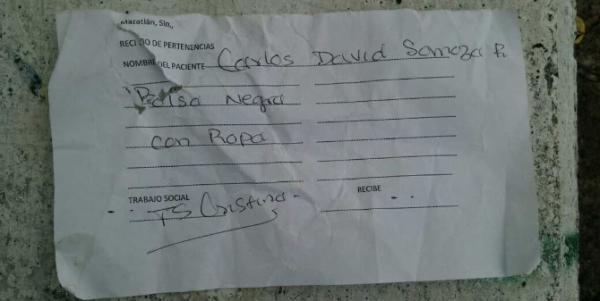 Mazatlán, Sin.,
RECIBO DE PERTENENCIAS
NOMBRE DEL PACIENTE Carlos David Samoza R.
Bolsa Negra
con Ropa
TRABAJO SOCIAL RECIBE
TS Cristina